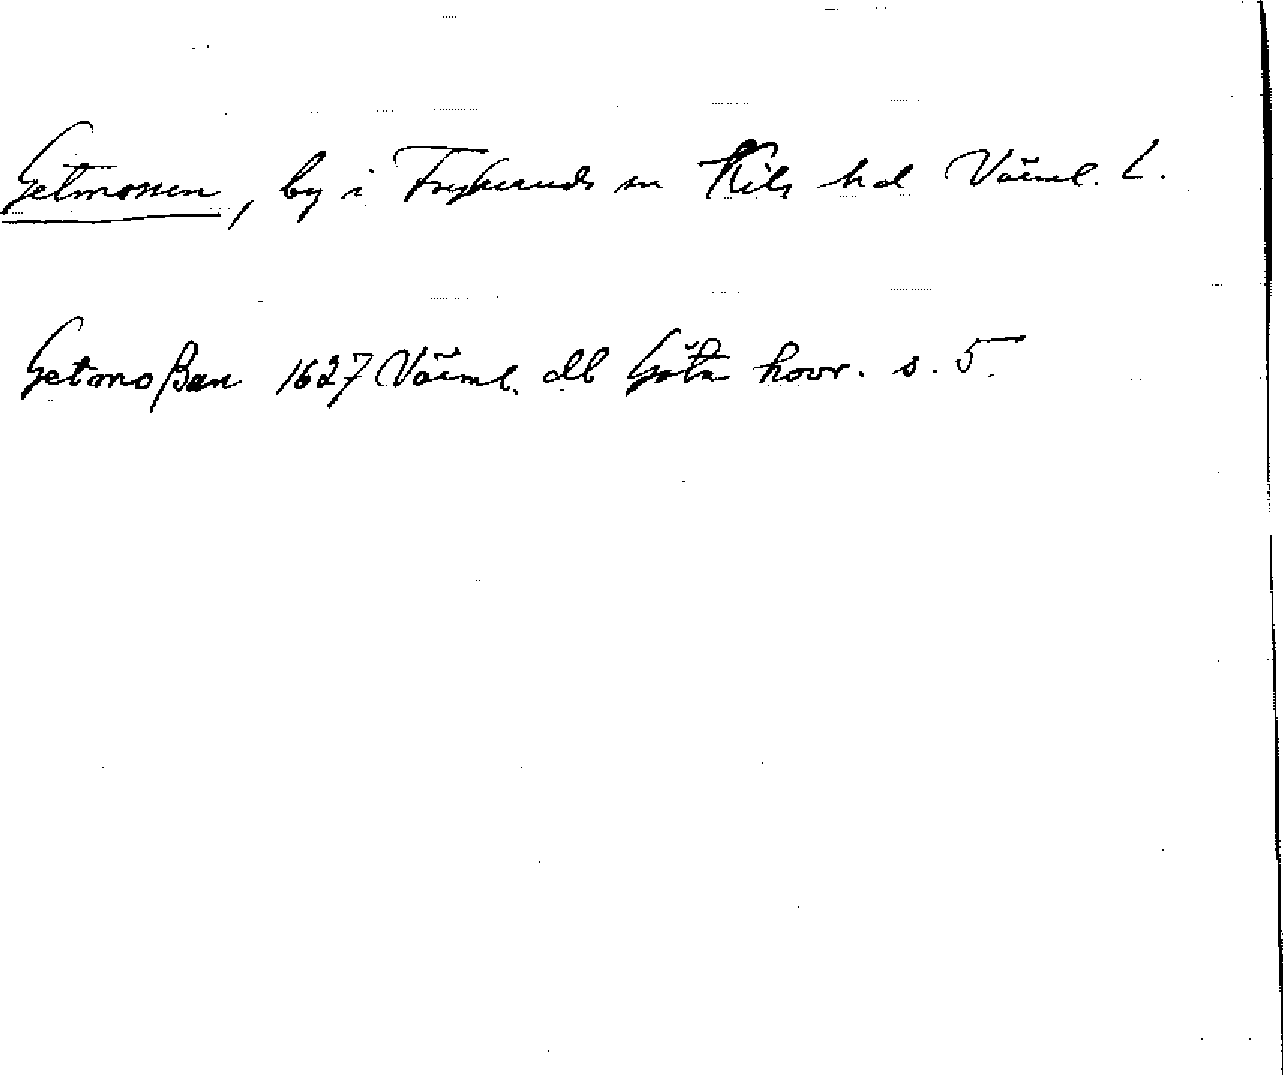 Getmossen, by i Frykerud sn Kils hd Värml. L.
Getmoßan 1627 Värml. db Göta hovr. s. 5.